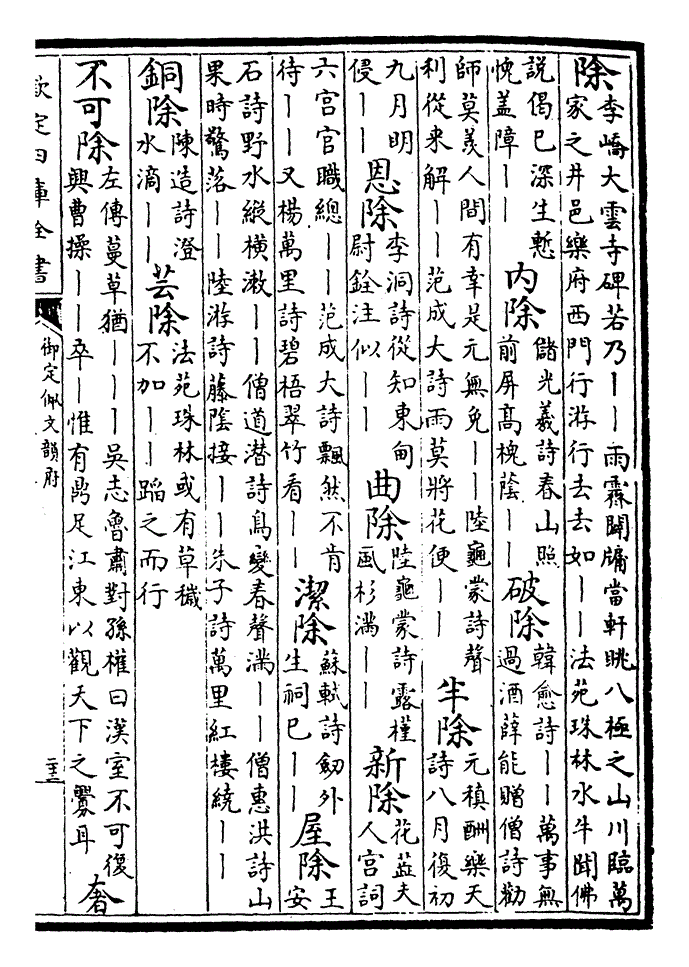 除李嶠大雲寺碑若乃丨丨雨霖闢牖當軒眺八極之山川臨萬
家之井邑樂府西門行游行去去如丨丨法苑珠林水牛聞佛
說偈已深生慙
愧盖障丨丨
内除儲光羲詩春山照
前屏高槐蔭丨丨
破除韓愈詩丨丨萬事無
過酒薛能贈僧詩勸
師莫羨人間有幸是元無免丨丨陸龜蒙詩聲
利從来解丨丨范成大詩雨莫將花便丨丨
半除元稹酬樂天
詩八月復初
九月明
侵丨丨
恩除李洞詩從知東甸
尉銓注似丨丨
曲除陸龜蒙詩露槿
風杉滿丨丨
新除花蕊夫
人宫詞
六宫官職總丨丨范成大詩飄然不肯
待丨丨又楊萬里詩碧梧翠竹看丨丨
潔除蘇軾詩劒外
生祠已丨丨
屋除王
安
石詩野水縱横漱丨丨僧道潜詩鳥變春聲滿丨丨僧惠洪詩山
果時驚落丨丨陸游詩藤陰接丨丨朱子詩萬里紅樓繞丨丨
銅除陳造詩澄
水滴丨丨
芸除法苑珠林或有草穢
不加丨丨蹈之而行
不可除左傳蔓草猶丨丨丨吴志魯肅對孫權曰漢室不可復
興曹操丨丨卒丨惟有鼎足江東以觀天下之釁耳
奢
欽定四庫全書
御定佩文韻府
二十三